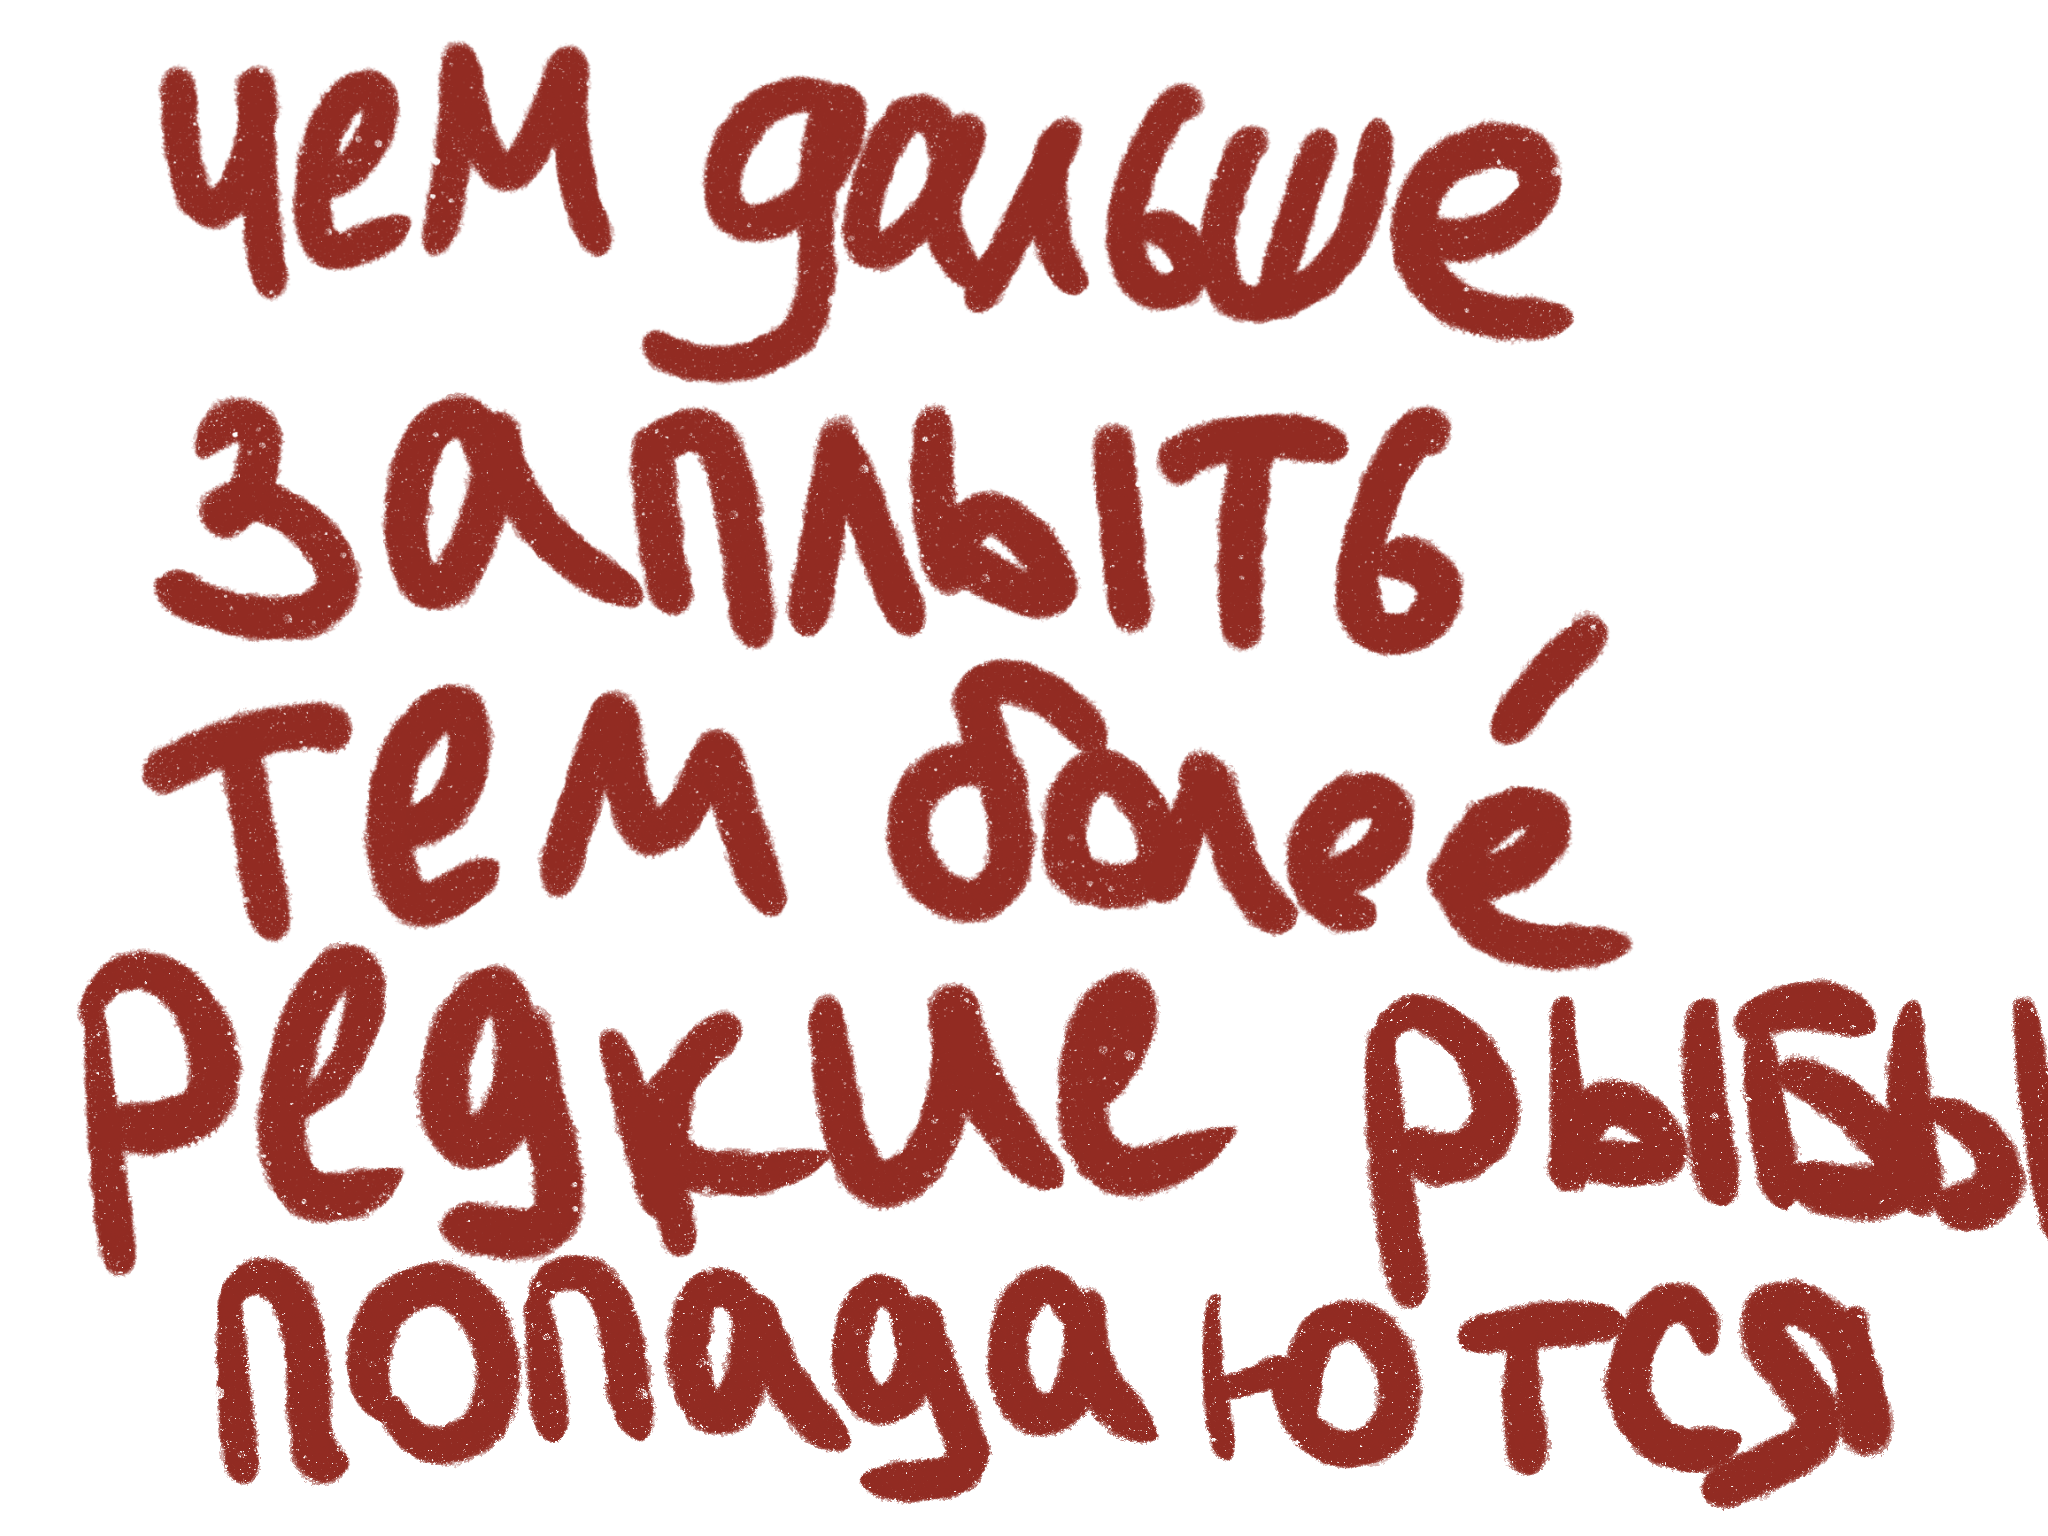 чем дальше
заплыть,
тем более
редкие рыбы
попадаются